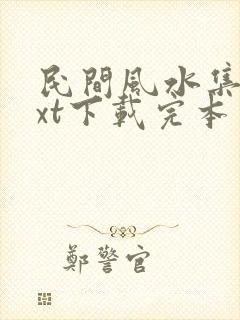 民間風水集
xt下載完本
鄭警官